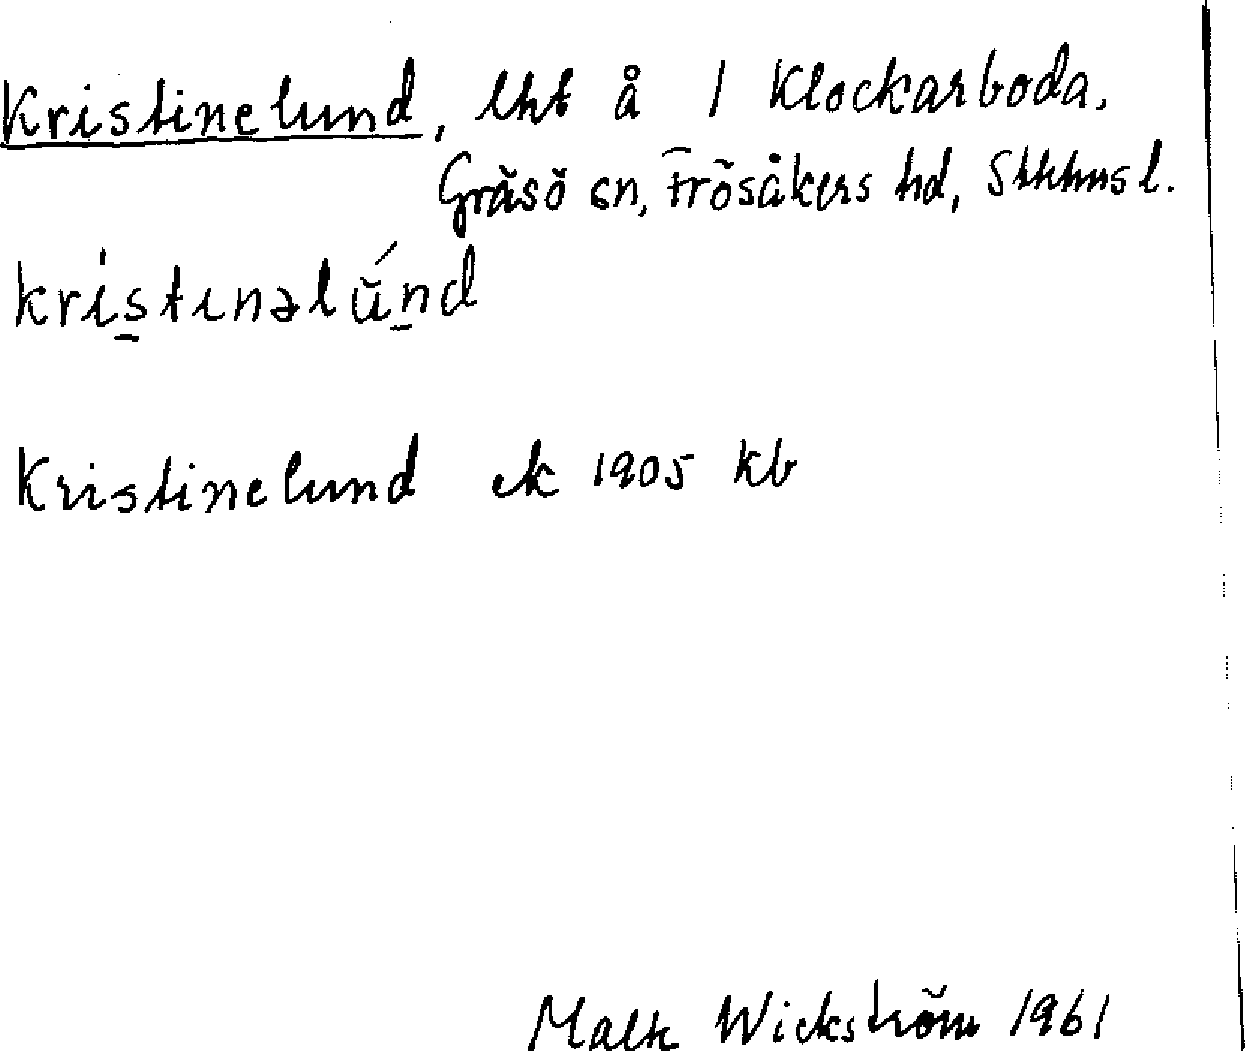 Kristinelund, lht å 1 Klockarboda.
Gräsö sn, Frösåkers hd, Sthlms l.
kristinəlúnd
Kristinelund ek 1905 kb
Wickström 1961